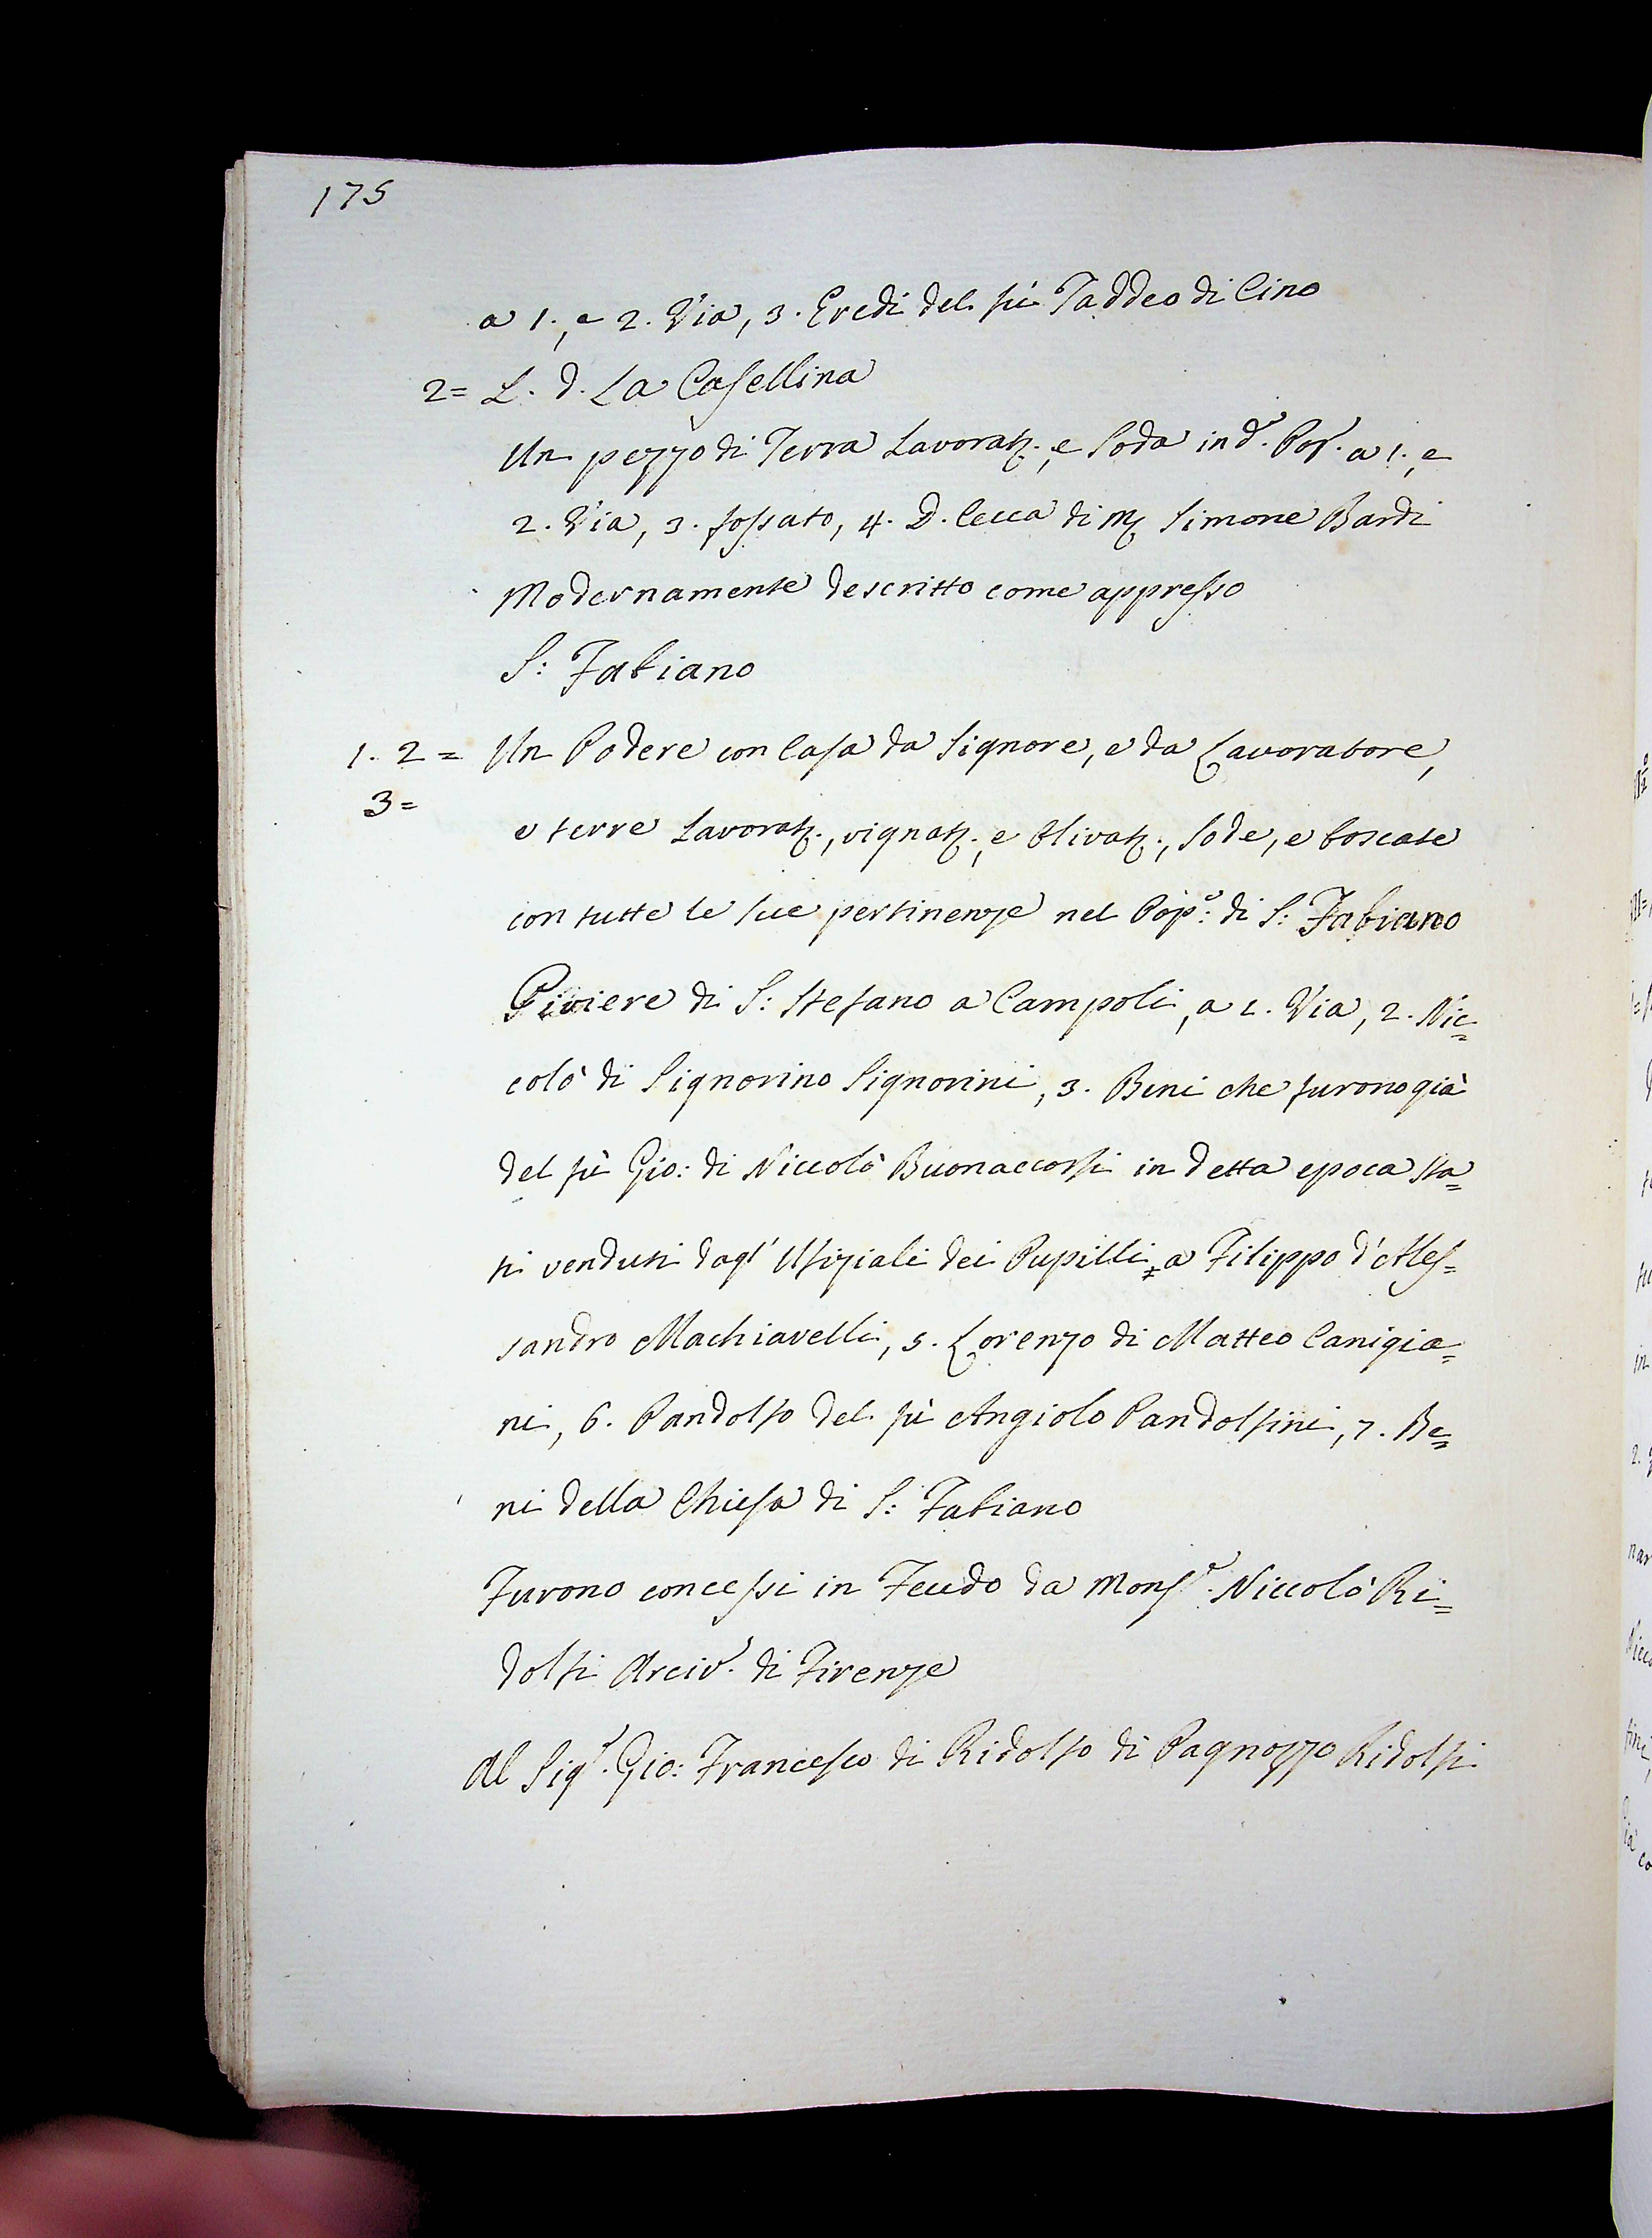 175
a 1., e 2. Via, 3. Eredi del fù Taddeo di Cino
2= L. d. La Casellina
Un pezzo di Terra Lavoratz., e Soda in d.º Pop.º a 1., e
2. Via, 3. fossato, 4. D. Cecca di M. Simone Bardi
Modernamente descritto come appresso
S: Fabiano
1. 2 = Un Podere con Casa da Signore, e da Lavoratore,
3=
e terre Lavoratz., vignatz., e Olivatz., Sode, e boscate
con tutte le sue pertinenze nel Pop.º: di S: Fabiano
Piviere di S: Stefano a Campoli, a 1. Via, 2. Nic=
colò di Signorino Signorini, 3. Beni che furono già
del fù Gio: di Niccolò Buonaccorsi in detta epoca sta=
ti venduti dagl' Ufiziali dei Pupilli a Filippo d'Ales=
sandro Machiavelli, 5. Lorenzo di Matteo Canigia=
ni, 6. Pandolfo del fù Angiolo Pandolfini, 7. Be=
ni della Chiesa di S: Fabiano
Furono concessi in Feudo da Mons.r Niccolò Ri=
dolfi Arciv.º di Firenze
Al Sig.r Gio: Francesco di Ridolfo di Pagnozzo Ridolfi